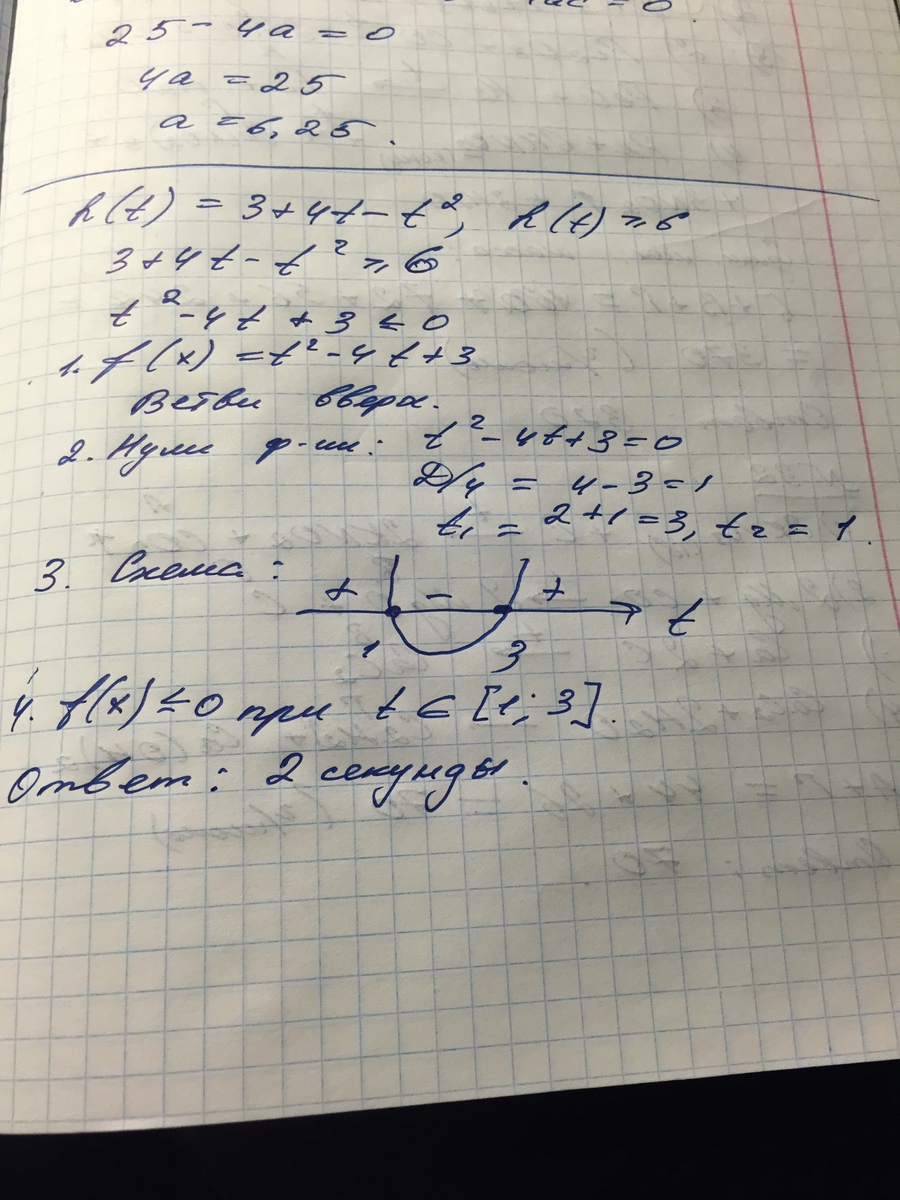 = 0.
25 - 4a = 0
4a = 25
a = 6,25.
h(t) = 3+4t - t², h(t) ⩾ 6
3+4t - t² ⩾ 6
t² - 4t + 3 ≤ 0
1. f(x) = t² - 4t + 3
Ветви вверх.
2. Нули ф-ии: t² - 4t + 3 = 0
D/4 = 4 - 3 = 1
t₁ = 2+1 = 3, t₂ = 1.
3. Схема:
+ - +
1 3 t
4. f(x) ≤ 0 при t ∈ [1; 3].
Ответ: 2 секунды.